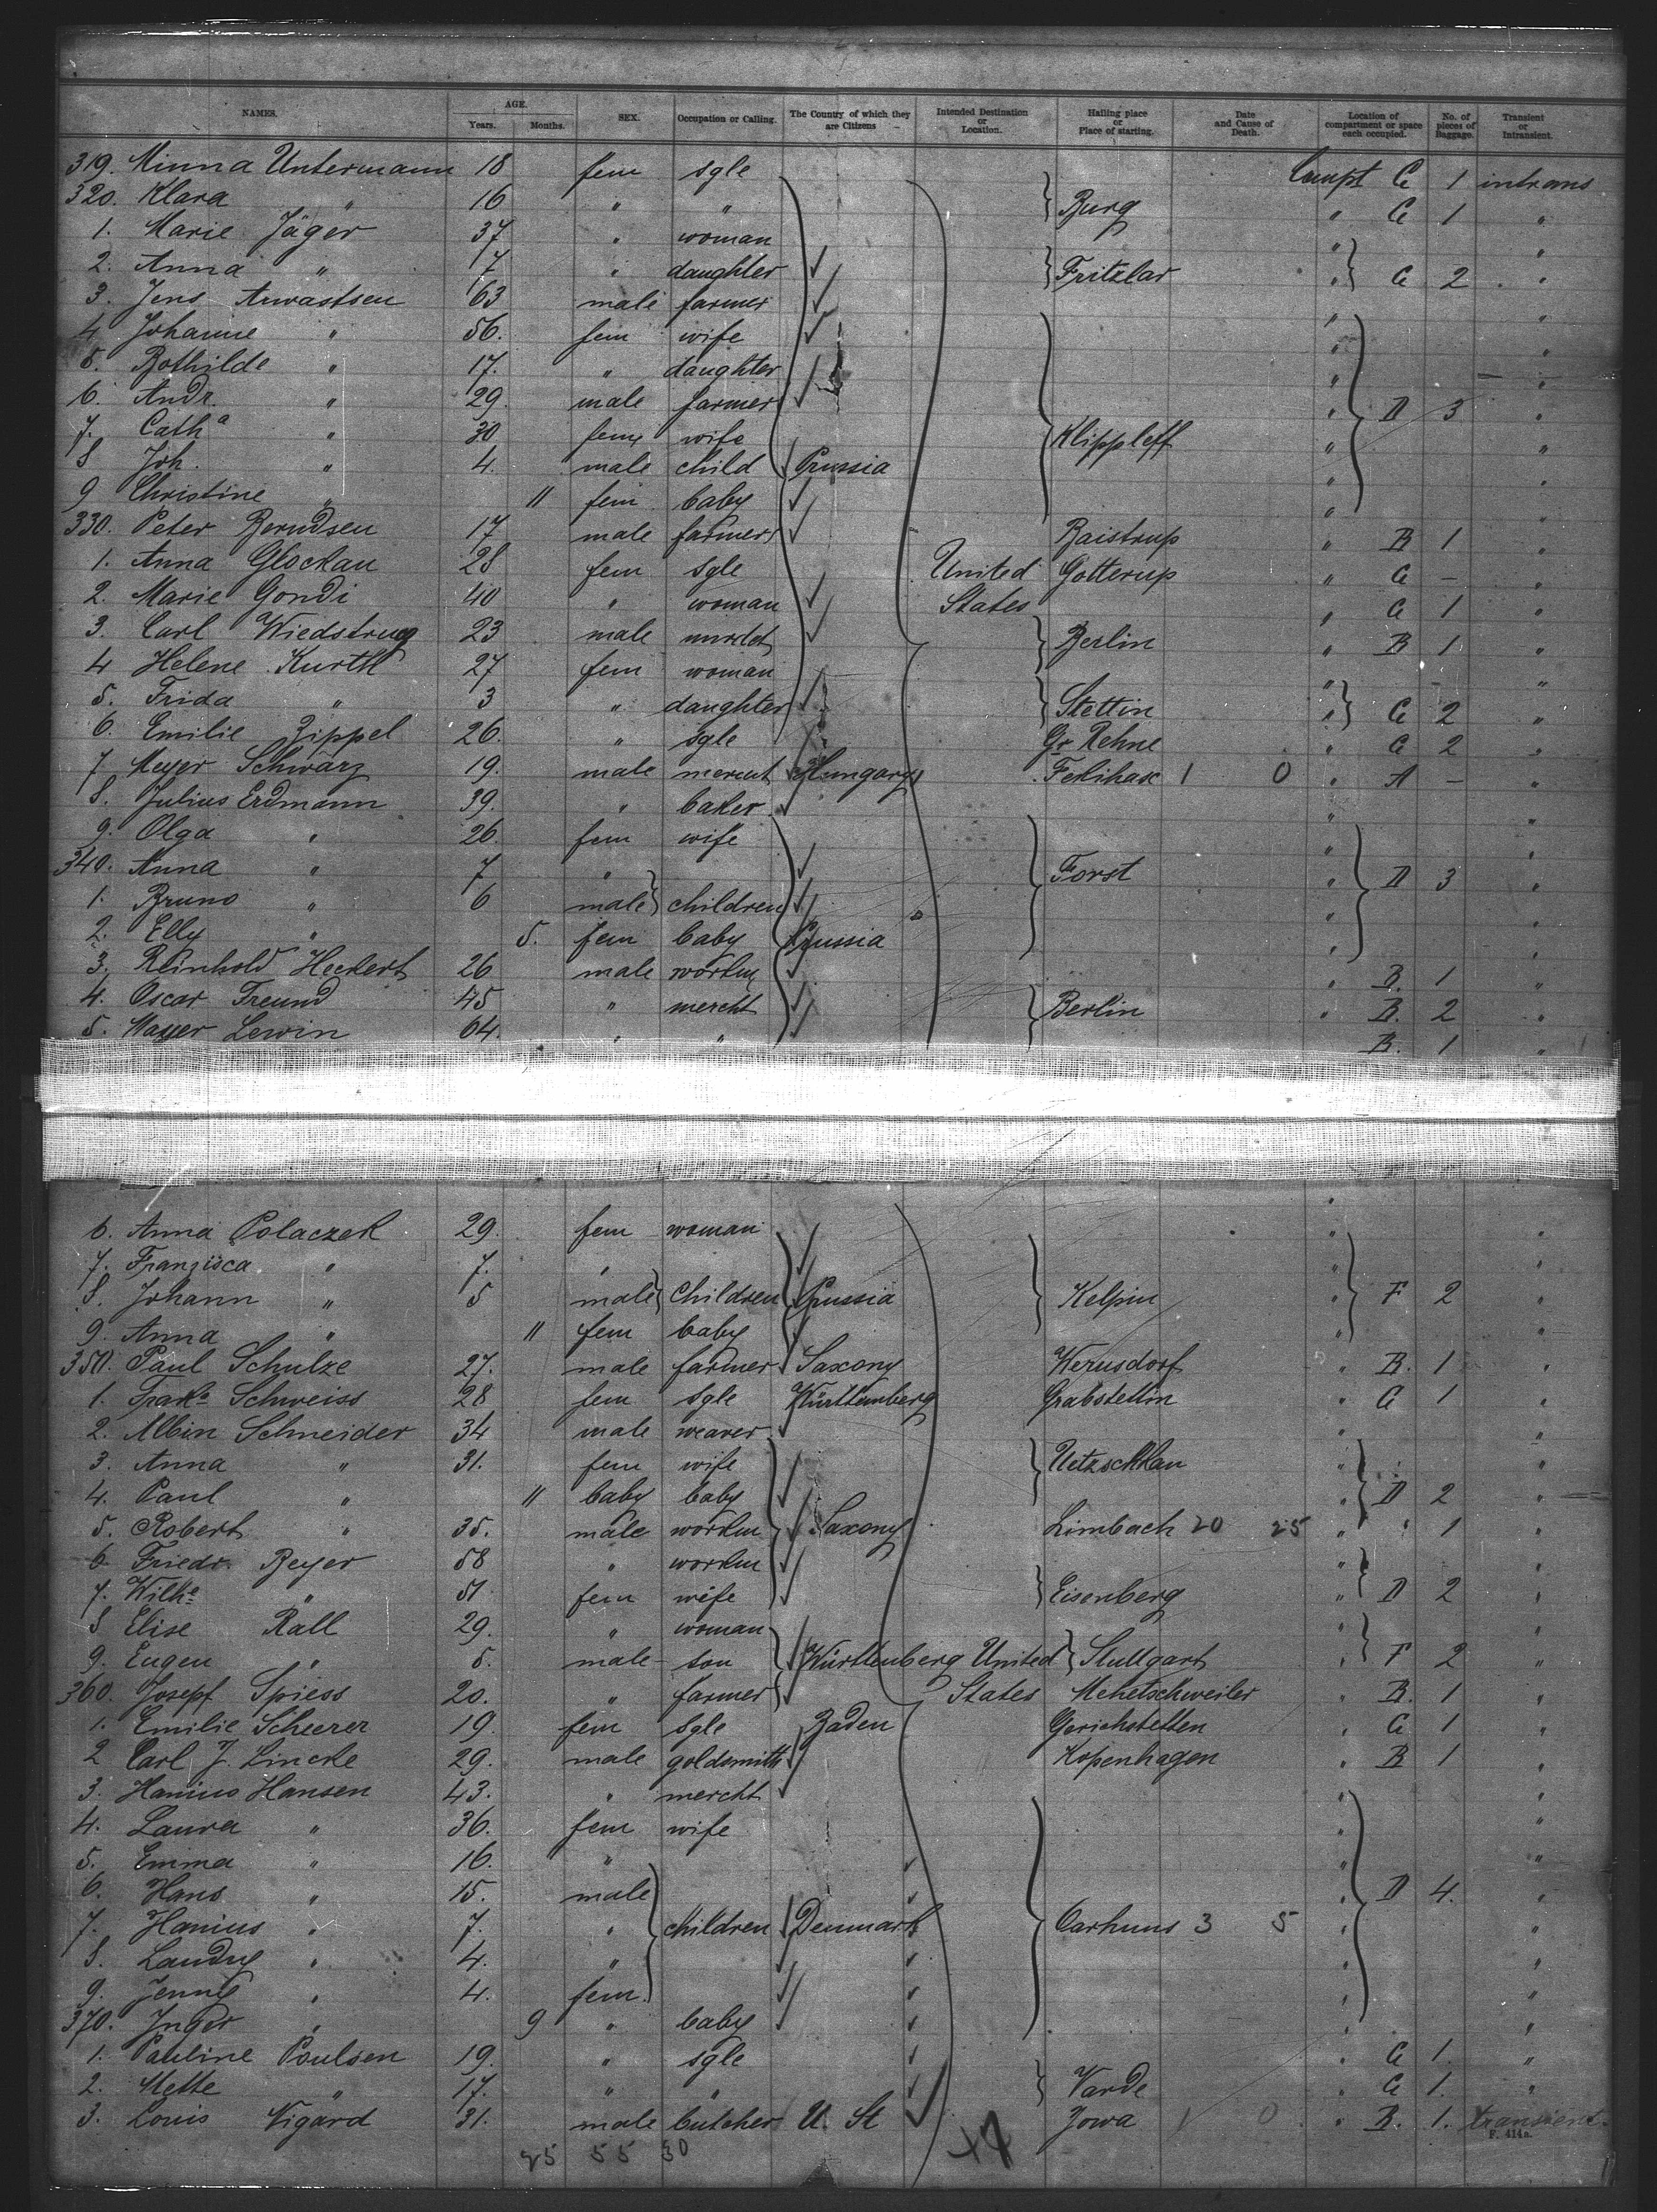 NAMES. AGE. Years. Months. SEX. Occupation or Calling. The Country of which they are Citizens Intended Destination or Location. Hailing place or Place of starting. Date and Cause of Death. Location of compartment or space each occupied. No. of pieces of Baggage. Transient or Intransient.
319. Minna Untermann 18 fem sgle Compt C 1 intrans
320. Klara " 16 " " Burg " C 1 "
1. Marie Jäger 37 " woman " "
2. Anna " 7 " daughter Fritzlar " C 2 "
3. Jens 63 male farmer " "
4 Johanne " 56. fem wife " "
5. Bothilde " 17. " daughter " "
6. Andr. " 29. male farmer " D 3 "
7. Cath a " 30 fem wife Klippleff " "
8 Joh. " 4. male child Prussia " "
9 Christine " 11 fem baby " "
330. Peter Berndsen 17 male farmer Baistrup " B 1 "
1. Anna Glockau 28 fem sgle United Gotterup " C - "
2. Marie Gondi 40 " woman States " C 1 "
3. Carl Wiedstrug 23 male Berlin " B 1 "
4 Helene Kurth 27 fem woman " "
5. Frida " 3 " daughter Stettin " C 2 "
6. Emilie Zippel 26. " sgle Gr Rehne " C 2 "
7. Meyer Schwarz 19. male Hungary 1 0 " A - "
8. Julius Erdmann 39. " baker " "
9. Olga " 26. fem wife " "
340. Anna " 7 " Forst " D 3 "
1. Bruno " 6 male children " "
2. Elly " 5. fem baby Prussia " "
3. Reinhold Heckert 26 male workm " B. 1 "
4. Oscar Freund 45 " mercht Berlin " B. 2 "
5. Mayer Lewin 64. " " B. 1 "
6. Anna Polaczek 29. fem woman " "
7. Franzisca " 7. " " "
8. Johann " 5 male children Prussia Kelpin " F 2 "
9. Anna " 11 fem baby " "
350. Paul Schulze 27. male farmer Saxony Wernsdorf " B. 1 "
1. Schweiss 28 fem sgle Württemberg Grabstettin " C 1 "
2. Albin Schneider 34 male weaver " "
3. Anna " 31. fem wife " "
4. Paul " 11 baby baby " D 2 "
5. Robert " 35. male workm Saxony Limbach 20 25 " " 1 "
6. Friedr. Beyer 58 " workm " "
7. Wilhe " 51 fem wife Eisenberg " D 2 "
8 Elise Rall 29. " woman " "
9. Eugen " 5. male son Württenberg United Stuttgart " F 2 "
360. Josepf Spiess 20. " farmer States Mehetschweiler " B. 1 "
1. Emilie Scheerer 19. fem sgle Baden Gerichstetten " C 1 "
2 Carl J. Lincke 29. male goldsmith Kopenhagen " B 1 "
3. Hansen 43. " mercht " "
4. Laura " 36. fem wife " "
5. Emma " 16. " " "
6. Hans " 15. male " D 4. "
7. " 7. " children Denmark 3 5 " "
8. " 4. " " "
9. Jenny " 4. fem. " "
370. Inger " 9 " baby " "
1. Pauline Poulsen 19. " sgle " C 1. "
2. Mette " 17. " " Varde " C 1. "
3. Louis Nigard 31. male butcher U. St Jowa 1 0 " B. 1. transient
F. 414a.
25 55 30